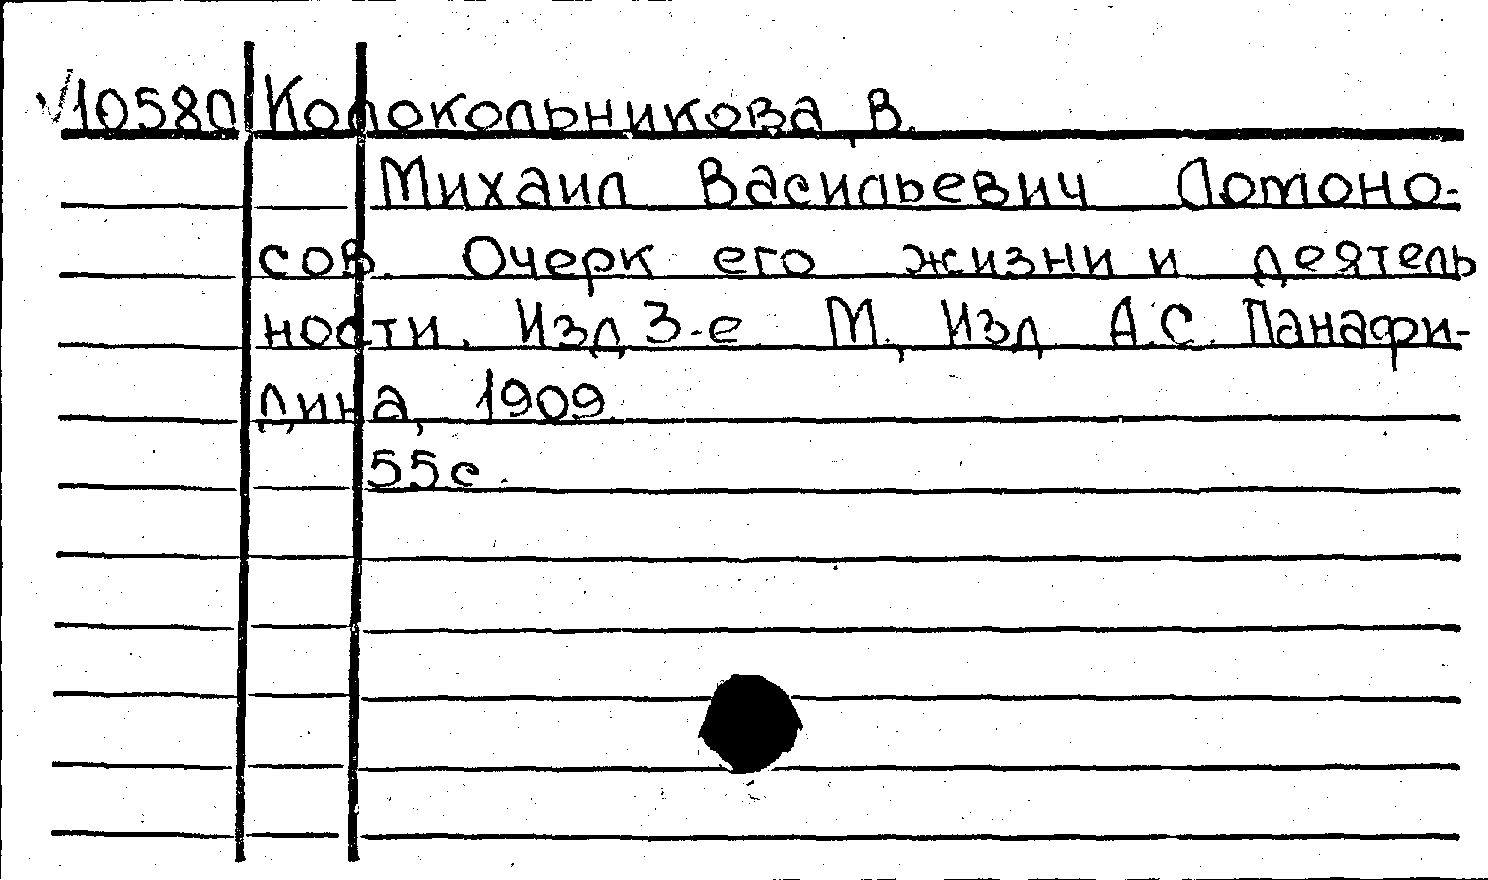 √10580 Колокольникова, В.
Михаил Васильевич Ломоно-
сов. Очерк его жизни и деятель
ности. Изд. 3-е М., Изд. А.С. Панафи-
дина, 1909.
55с.